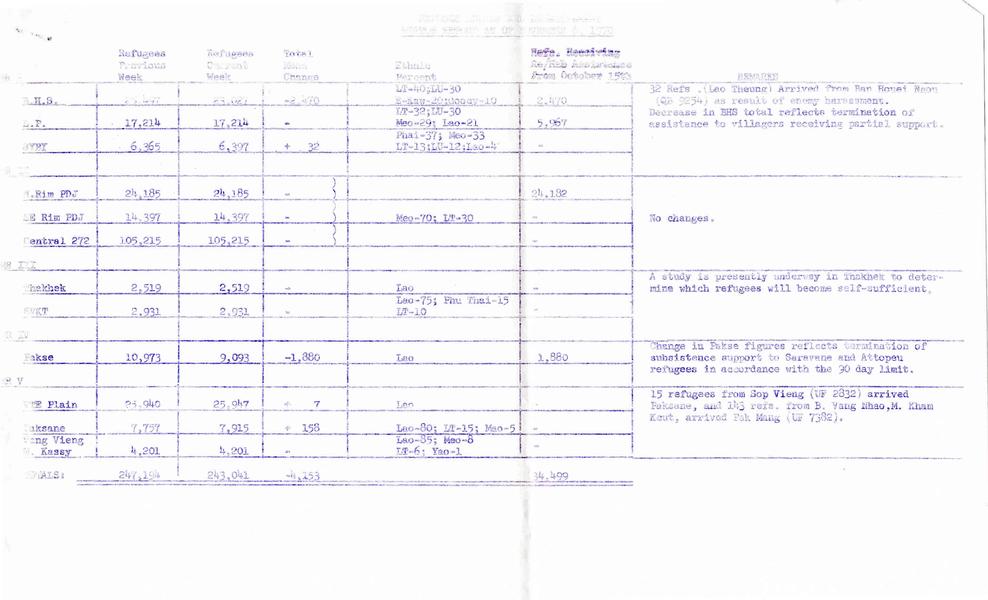 Refugees Refugees Total Refs. Receiving
Previous Current Ethnic Re/Reb Assistance
Week Week Change Percent from October 1970 REMARKS
LT-40;LU-30 32 Refs .(Lao Theung) Arrived from Ban Houei
B.H.S. 2,470 (QB 9254) as result of enemy harassment.
LT-32;LU-30 Decrease in BHS total reflects termination of
L.P. 17,214 17,214 - Meo-29; Lao-21 5,967 assistance to villagers receiving partial support.
Phai-37; Meo-33
SYBY 6,365 6,397 + 32 LT-13;LU-12;Lao-4 -
N.Rim PDJ 24,185 24,185 - 24,182
SE Rim PDJ 14,397 14,397 - Meo-70; LT-30 - No changes.
Central 272 105,215 105,215 - -
MR III
A study is presently underway in Thakhek to deter-
Thakhek 2,519 2,519 - Lao - mine which refugees will become self-sufficient.
Lao-75; Phu Thai-15
SVKT 2,931 2,931 - LT-10 -
Change in Pakse figures reflects termination of
Pakse 10,973 9,093 -1,880 Lao 1,880 subsistence support to Saravane and Attopeu
refugees in accordance with the 90 day limit.
MR V
15 refugees from Sop Vieng (UF 2832) arrived
VTE Plain 25,940 25,947 + 7 Lao - Paksane, and 143 refs. from B. Vang Nhao,M. Kham
Keut, arrived Pak Mang (UF 7382).
Paksane 7,757 7,915 + 158 Lao-80; LT-15; Meo-5 -
Vang Vieng Lao-85; Meo-8
M. Kassy 4,201 4,201 - LT-6; Yao-1 -
TOTALS: 247,194 243,041 -4,153 34,499